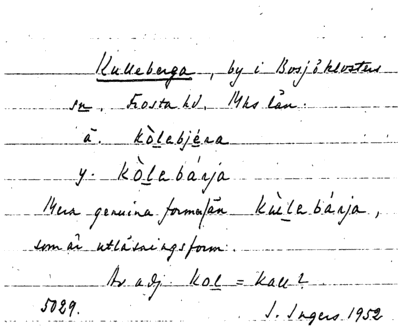 Kulleberga, by i Bosjöklosters
sn, Frosta hd, Mhs län.
ä. kòlebjéra
y. kòlebárja
Mera genuina former än kùlebárja,
som är utläsningsform.
Av adj. kol = kall?
5029. I. Ingers. 1952